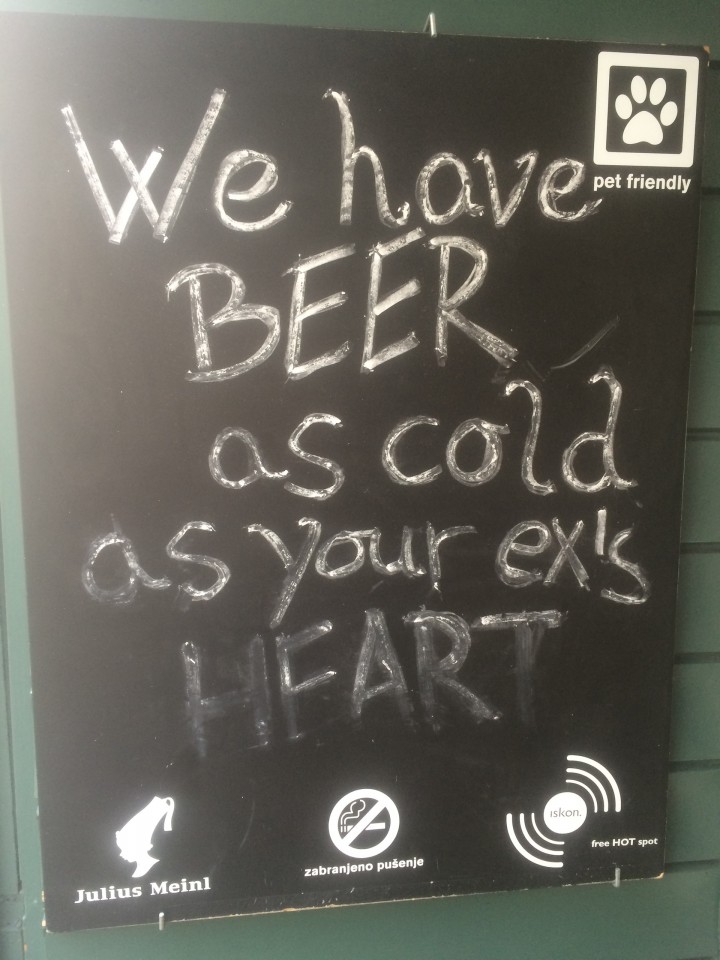 We have
pet friendly
BEER
as cold
as your ex's
HEART
Julius Meinl
zabranjeno pušenje
iskon.
free HOT spot